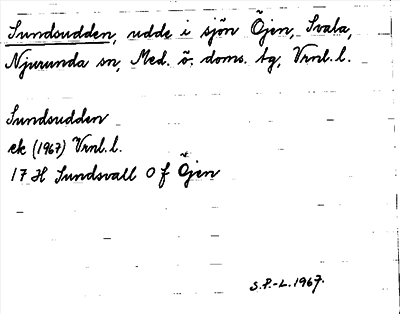 Sundsudden, udde i sjön Öjen, Svala,
Njurunda sn, Med. ö. doms. tg, Vrnl. l.
Sundsudden
ek (1967) Vrnl. l.
17 H Sundsvall O f Öjen
S.P.-L. 1967.